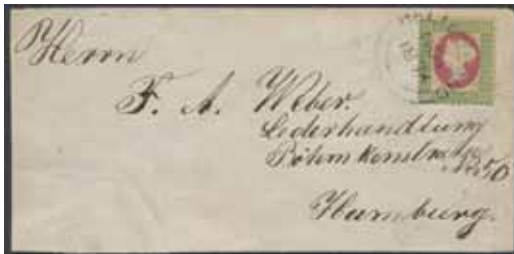 Herrn
F. A. Weber.
Lederhandlung
Böhmkenstraße
No 50
Hamburg.